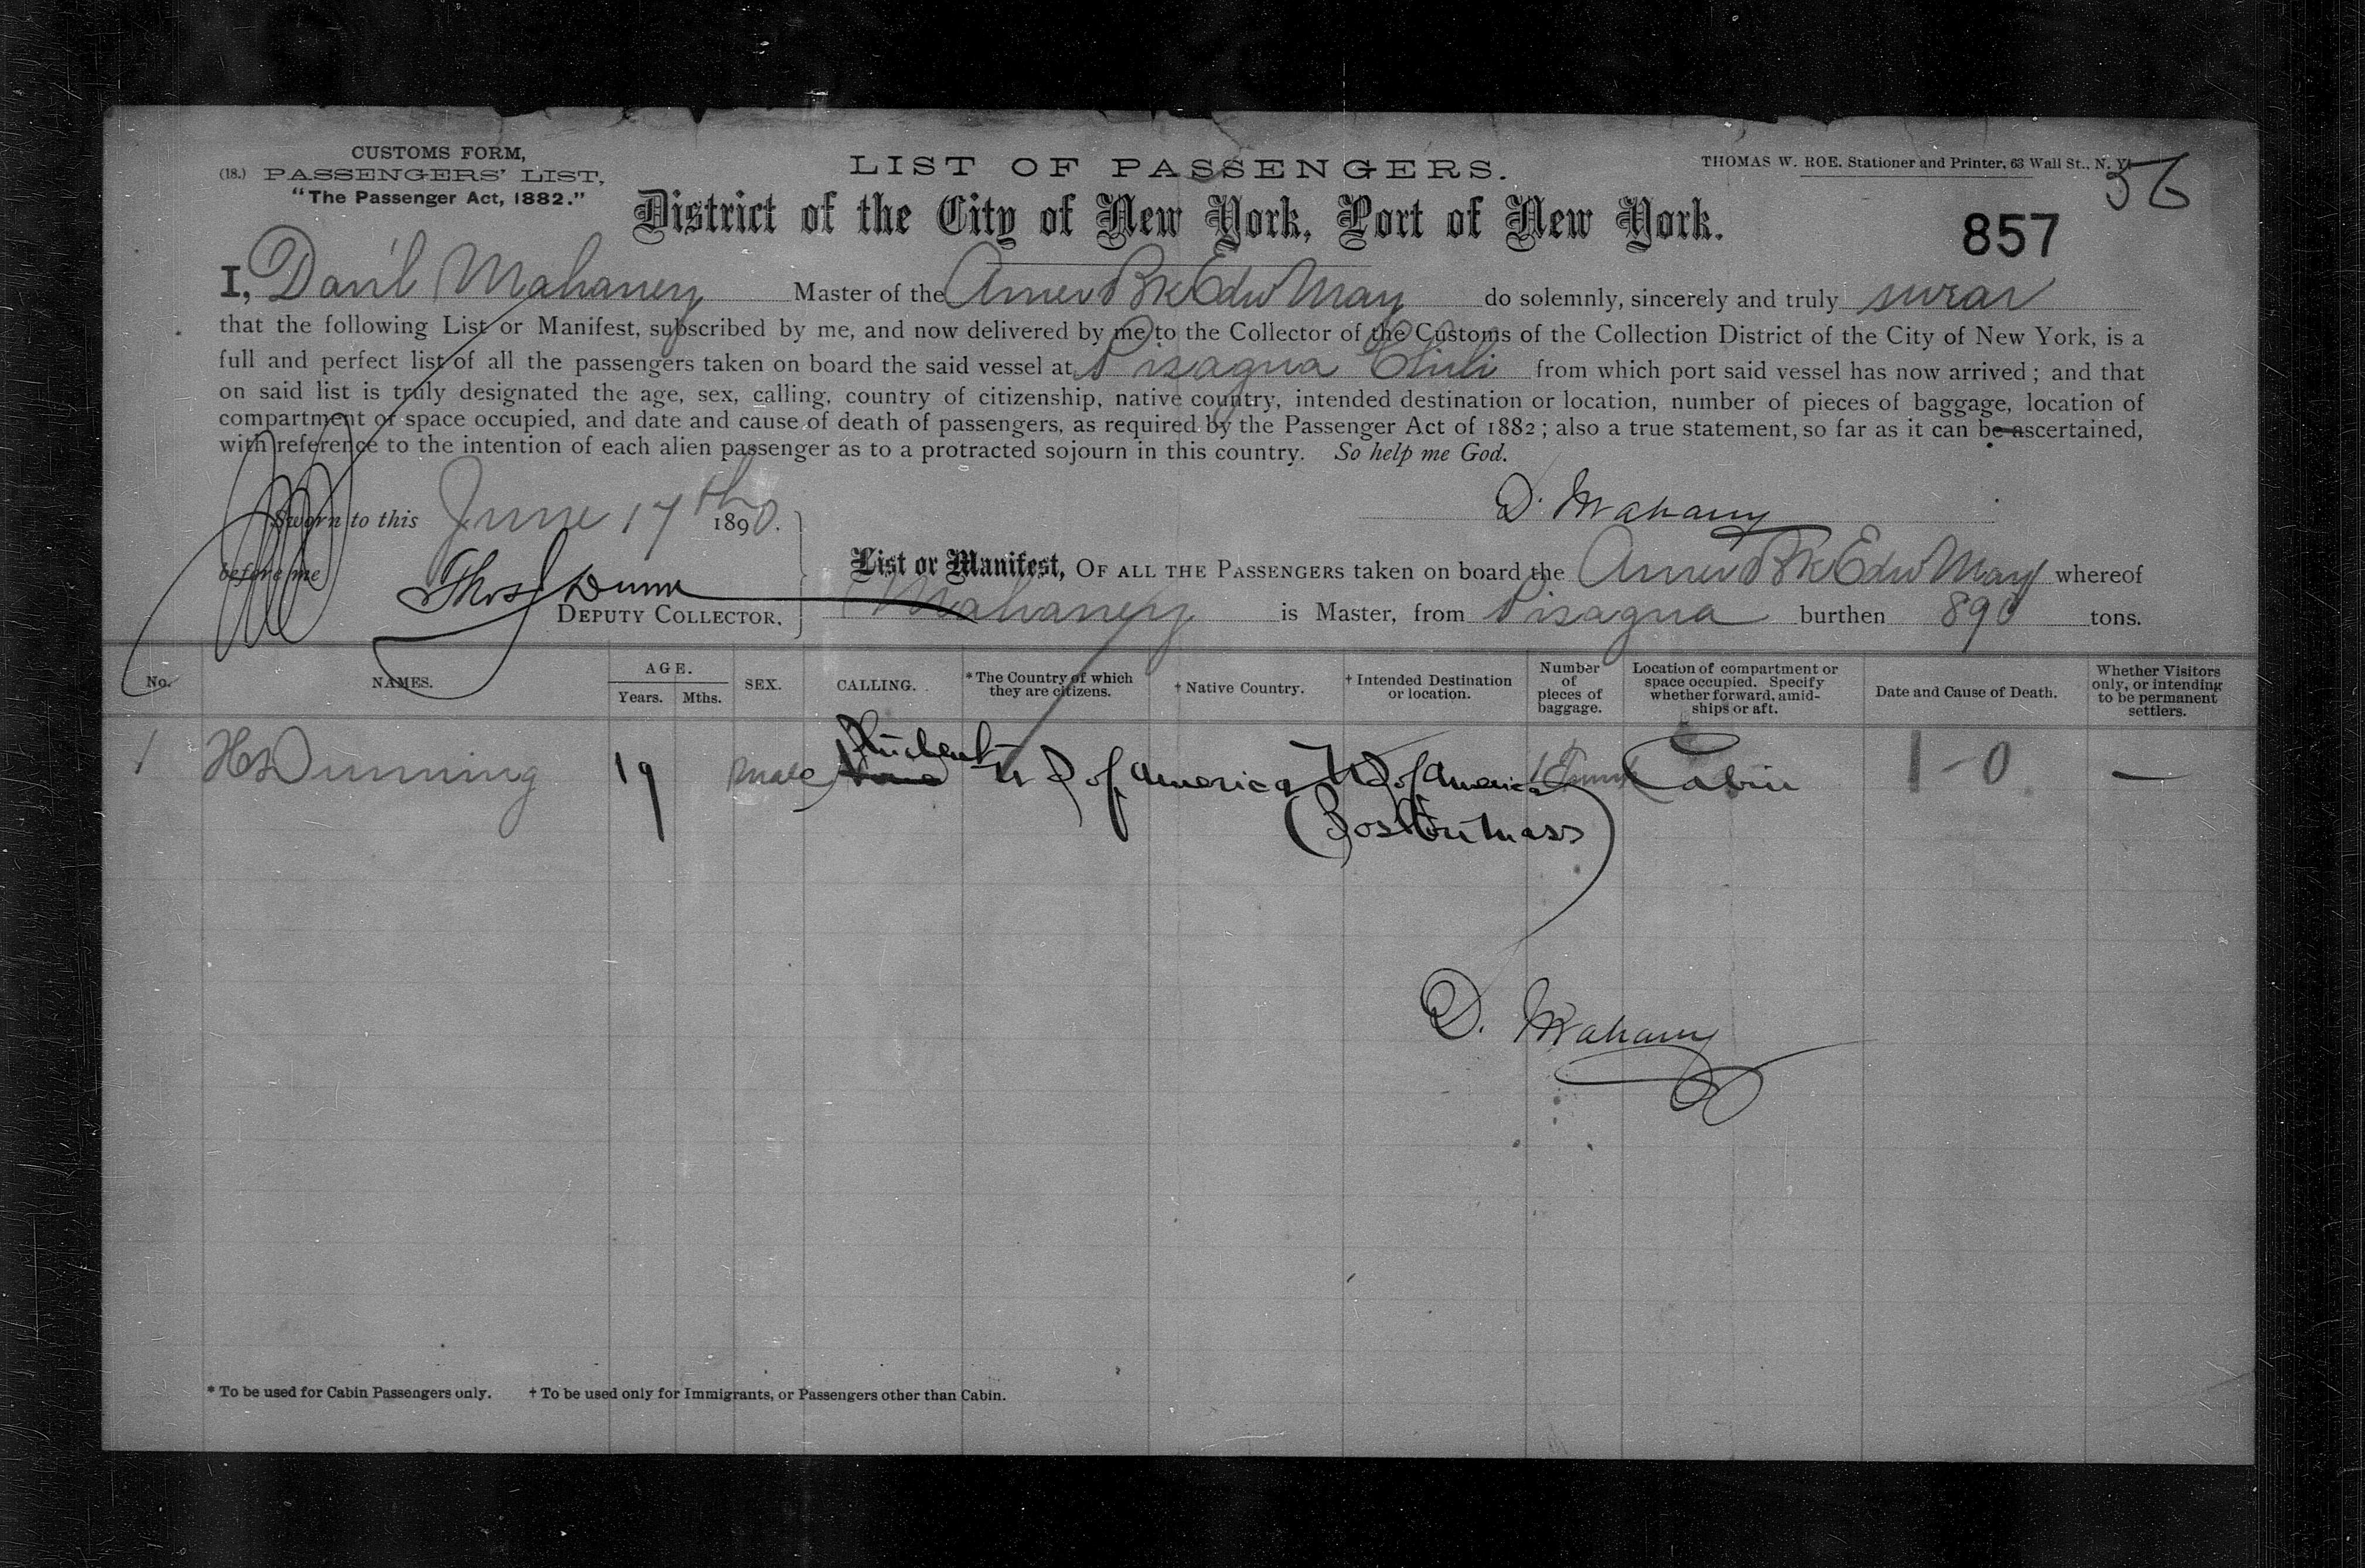 CUSTOMS FORM,
(18.) PASSENGERS' LIST,
"The Passenger Act, 1882."
LIST OF PASSENGERS.
THOMAS W. ROE. Stationer and Printer, 63 Wall St., N. Y.
56
District of the City of New York, Port of New York.
857
I, Dan'l Mahaney Master of the Amer Bk Edw May do solemnly, sincerely and truly swear
that the following List or Manifest, subscribed by me, and now delivered by me to the Collector of the Customs of the Collection District of the City of New York, is a
full and perfect list of all the passengers taken on board the said vessel at Pisagua Chili from which port said vessel has now arrived; and that
on said list is truly designated the age, sex, calling, country of citizenship, native country, intended destination or location, number of pieces of baggage, location of
compartment or space occupied, and date and cause of death of passengers, as required by the Passenger Act of 1882; also a true statement, so far as it can be ascertained,
with reference to the intention of each alien passenger as to a protracted sojourn in this country. So help me God.
Sworn to this June 17th 1890.
D. Mahany
before me Thos Dunn
DEPUTY COLLECTOR.
List or Manifest, OF ALL THE PASSENGERS taken on board the Amer Bk Edw May whereof
Mahaney is Master, from Pisagua burthen 890 tons.
No. NAMES. AGE. Years. Mths. SEX. CALLING. *The Country of which they are citizens. † Native Country. † Intended Destination or location. Number of pieces of baggage. Location of compartment or space occupied. Specify whether forward, amidships or aft. Date and Cause of Death. Whether Visitors only, or intending to be permanent settlers.
Student
1 H Dunning 19 Male None U S of America U S of America 1 Trunk Cabin 1 - 0 —
(Boston Mass)
D. Mahany
* To be used for Cabin Passengers only. † To be used only for Immigrants, or Passengers other than Cabin.